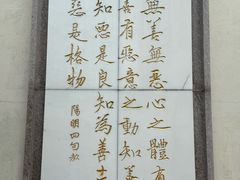 無善無惡心之體有
善有惡意之動知善
知惡是良知為善去
惡是格物
陽明四句教